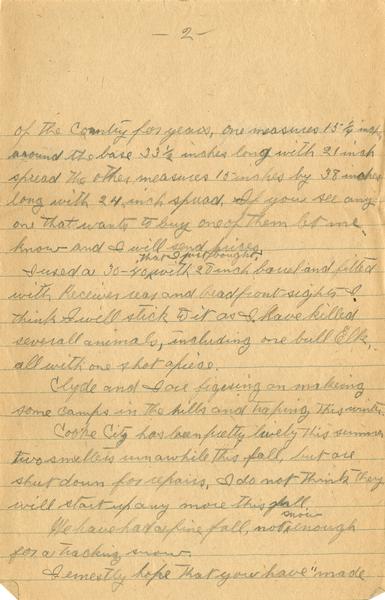 - 2 -
of the Country for years, one measures 15 ½ inch
around the base 33½ inches long with 21 inch
spread the other measures 15 inches by 38 inches
long with 24 inch spread. If you see any
one that wants to buy one of them let me
know and I will send prices.
that I just bought
I used a 30-40 with 28 inch barrel and fitted
with Receiver rear and bead front sights I
think I will stick to it as I have killed
several animals, including one bull Elk,
all with one shot apiece.
Clyde and I are figuring on makeing
some camps in the hills and traping this winter.
Cooke City has been pretty lively this summer
two smelters run awhile this fall, but are
shut down for repairs, I do not think they
will start up any more this fall,
snow
We have had a fine fall, not enough
for a tracking snow.
I ernestly hope that you have "made